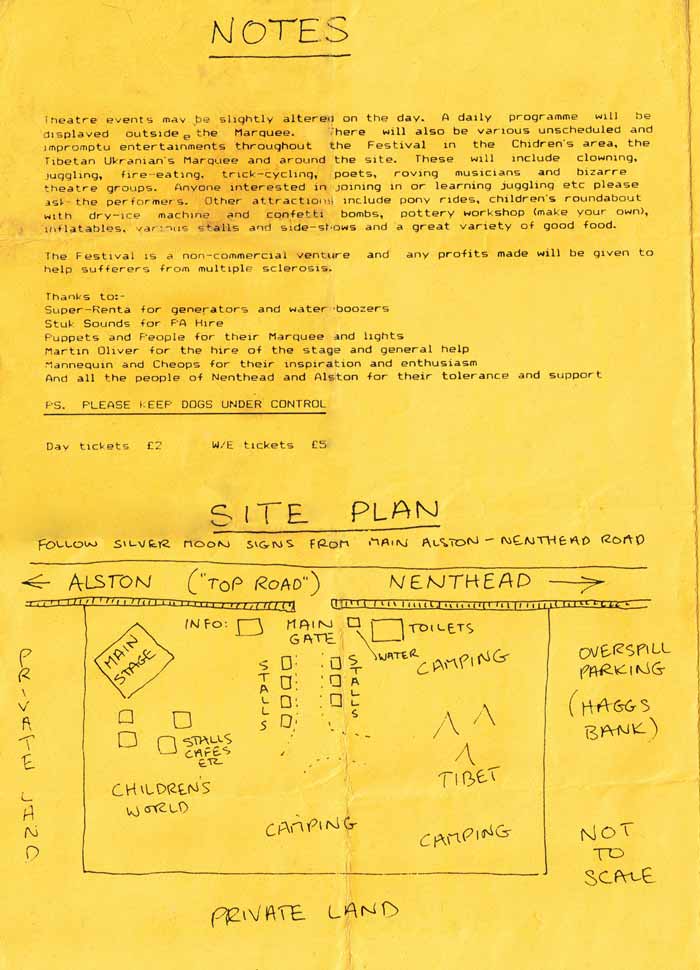 NOTES
Theatre events may be slightly altered on the day. A daily programme will be
displayed outside the Marquee. There will also be various unscheduled and
impromptu entertainments throughout the Festival in the Chidren's area, the
Tibetan Ukranian's Marquee and around the site. These will include clowning,
juggling, fire-eating, trick-cycling, poets, roving musicians and bizarre
theatre groups. Anyone interested in joining in or learning juggling etc please
ask the performers. Other attractions include pony rides, children's roundabout
with dry-ice machine and confetti bombs, pottery workshop (make your own),
inflatables, various stalls and side-shows and a great variety of good food.
The Festival is a non-commercial venture and any profits made will be given to
help sufferers from multiple sclerosis.
Thanks to:-
Super-Renta for generators and water boozers
Stuk Sounds for PA Hire
Puppets and People for their Marquee and lights
Martin Oliver for the hire of the stage and general help
Mannequin and Cheops for their inspiration and enthusiasm
And all the people of Nenthead and Alston for their tolerance and support
PS. PLEASE KEEP DOGS UNDER CONTROL
Day tickets £2 W/E tickets £5
SITE PLAN
FOLLOW SILVER MOON SIGNS FROM MAIN ALSTON - NENTHEAD ROAD
← ALSTON ("TOP ROAD") NENTHEAD →
INFO:
MAIN
GATE
TOILETS
WATER
MAIN
STAGE
STALLS
STALLS
CAMPING
OVERSPILL
PARKING
(HAGGS
BANK)
PRIVATE LAND
STALLS
CAFES
ETC
TIBET
CHILDREN'S
WORLD
CAMPING
CAMPING
NOT
TO
SCALE
PRIVATE LAND